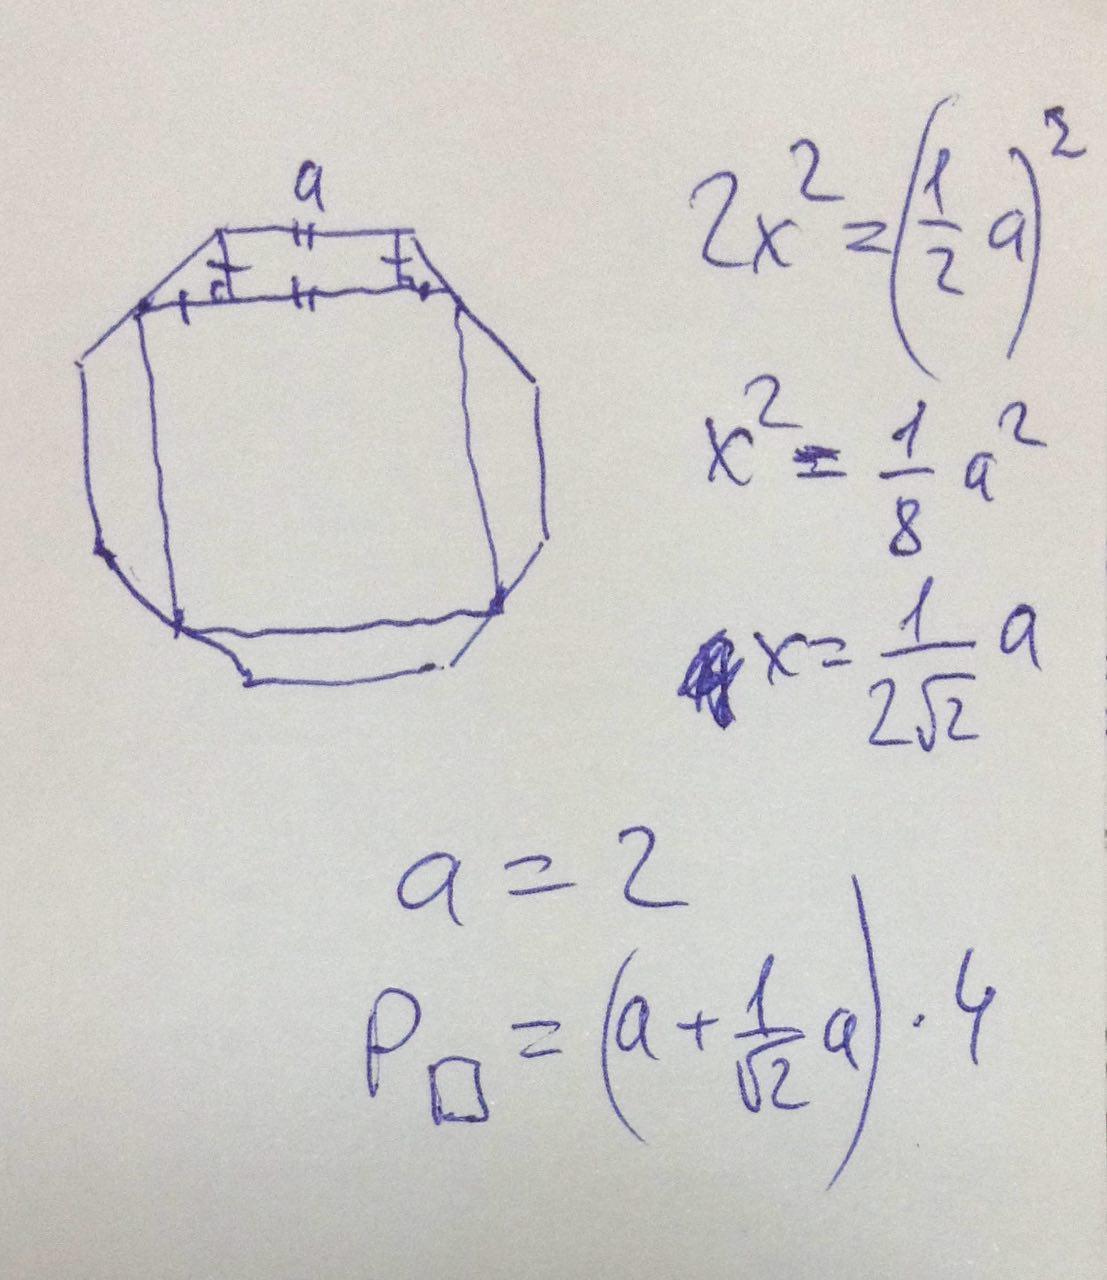 a
2x² = (1/2 a)²
x² = 1/8 a²
x = 1/(2√2) a
a = 2
P□ = (a + 1/√2 a) · 4